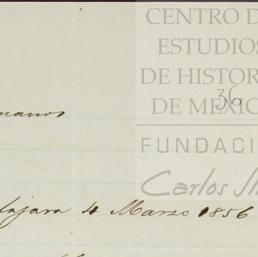 CENTRO D
ESTUDIOS
DE HISTOR
DE MEXIC
36
FUNDACI
Carlos Sli
lajara 4 Marzo 1856